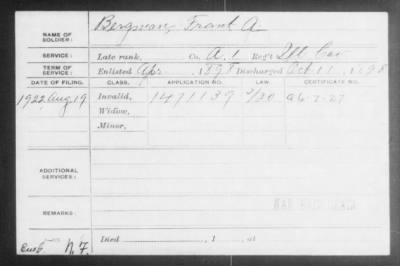 NAME OF SOLDIER: Bergman, Frank A
SERVICE: Late rank, Co. A. 1 Reg't Ill Cav
TERM OF SERVICE: Enlisted Apr 1898 Discharged Oct 11, 1898
DATE OF FILING. CLASS. APPLICATION NO. LAW. CERTIFICATE NO.
1922 Aug 19 Invalid, 1471139
Widow,
Minor,
ADDITIONAL SERVICES:
REMARKS:
Died , 1 , at